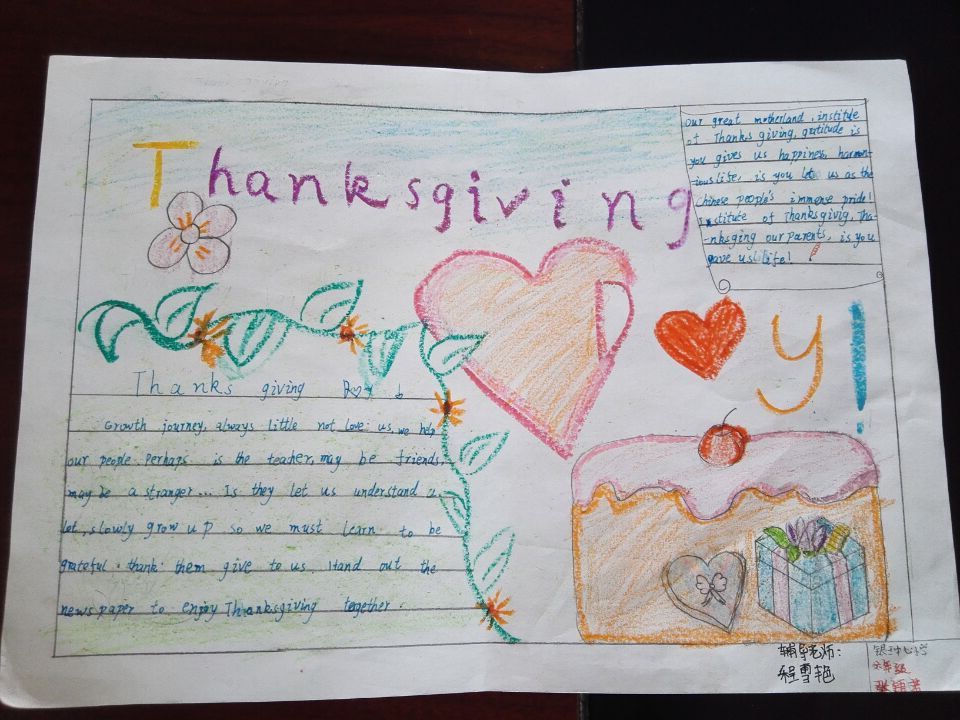 Thanksgiving
our great motherland, institute
of Thanks giving, gratitude is
you gives us happiness, harmon-
ious life, is you let us as the
Chinese people's immense pride!
Institute of Thanksgivig, Tha-
nksging our parents, is you
gave us life!
y!
Thanks giving
Growth journey, always little not love: us, we help
our people. Perhaps is the teacher, may be friends,
may be a stranger... Is they let us understand a
lot, slowly grow up so we must learn to be
grateful. thank them give to us. Hand out the
news paper to enjoy Thanksgiving together.
辅导老师:
程雪艳
六年级